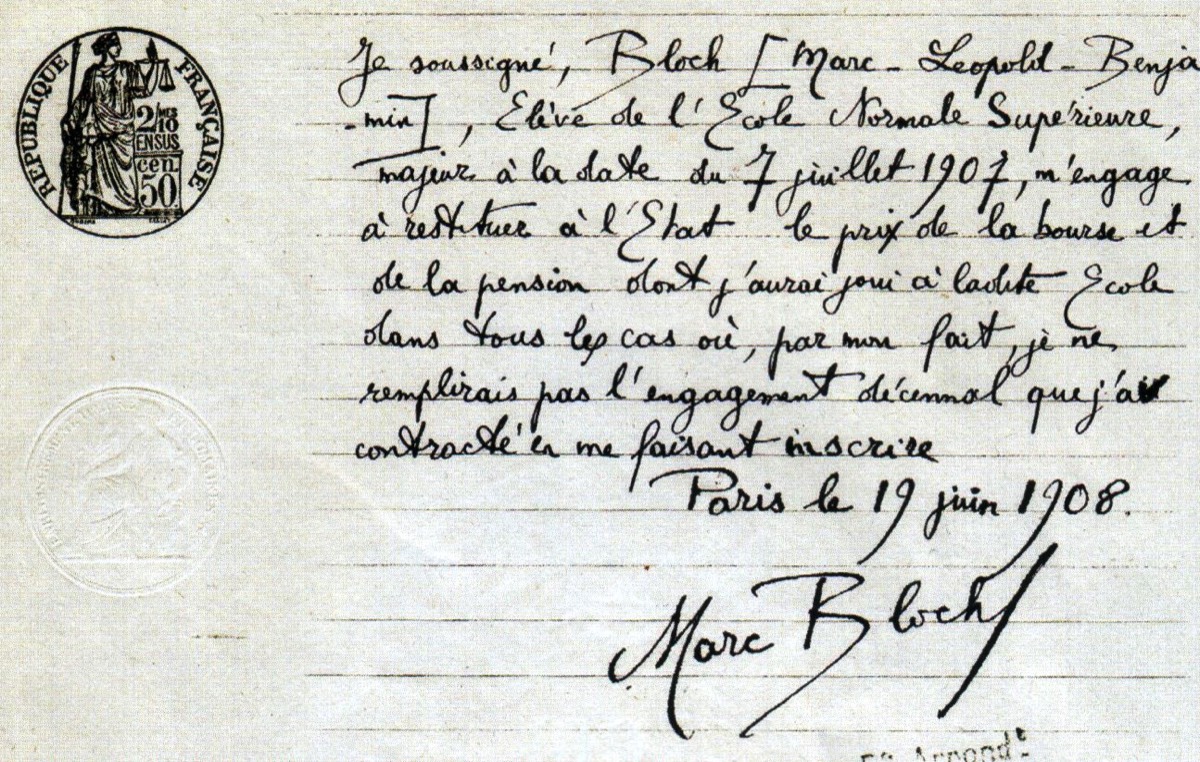 RÉPUBLIQUE FRANÇAISE
2/10 EN SUS
cen. 50
Je soussigné, Bloch [Marc - Leopold - Benja
-min], Elève de l'Ecole Normale Supérieure,
majeur à la date du 7 juillet 1907, m'engage
à restituer à l'Etat le prix de la bourse et
de la pension dont j'aurai joui à ladite Ecole
dans tous les cas où, par mon fait, je ne
remplirais pas l'engagement décennal que j'ai
contracté en me faisant inscrire
Paris le 19 juin 1908.
Marc Bloch
Arrondt